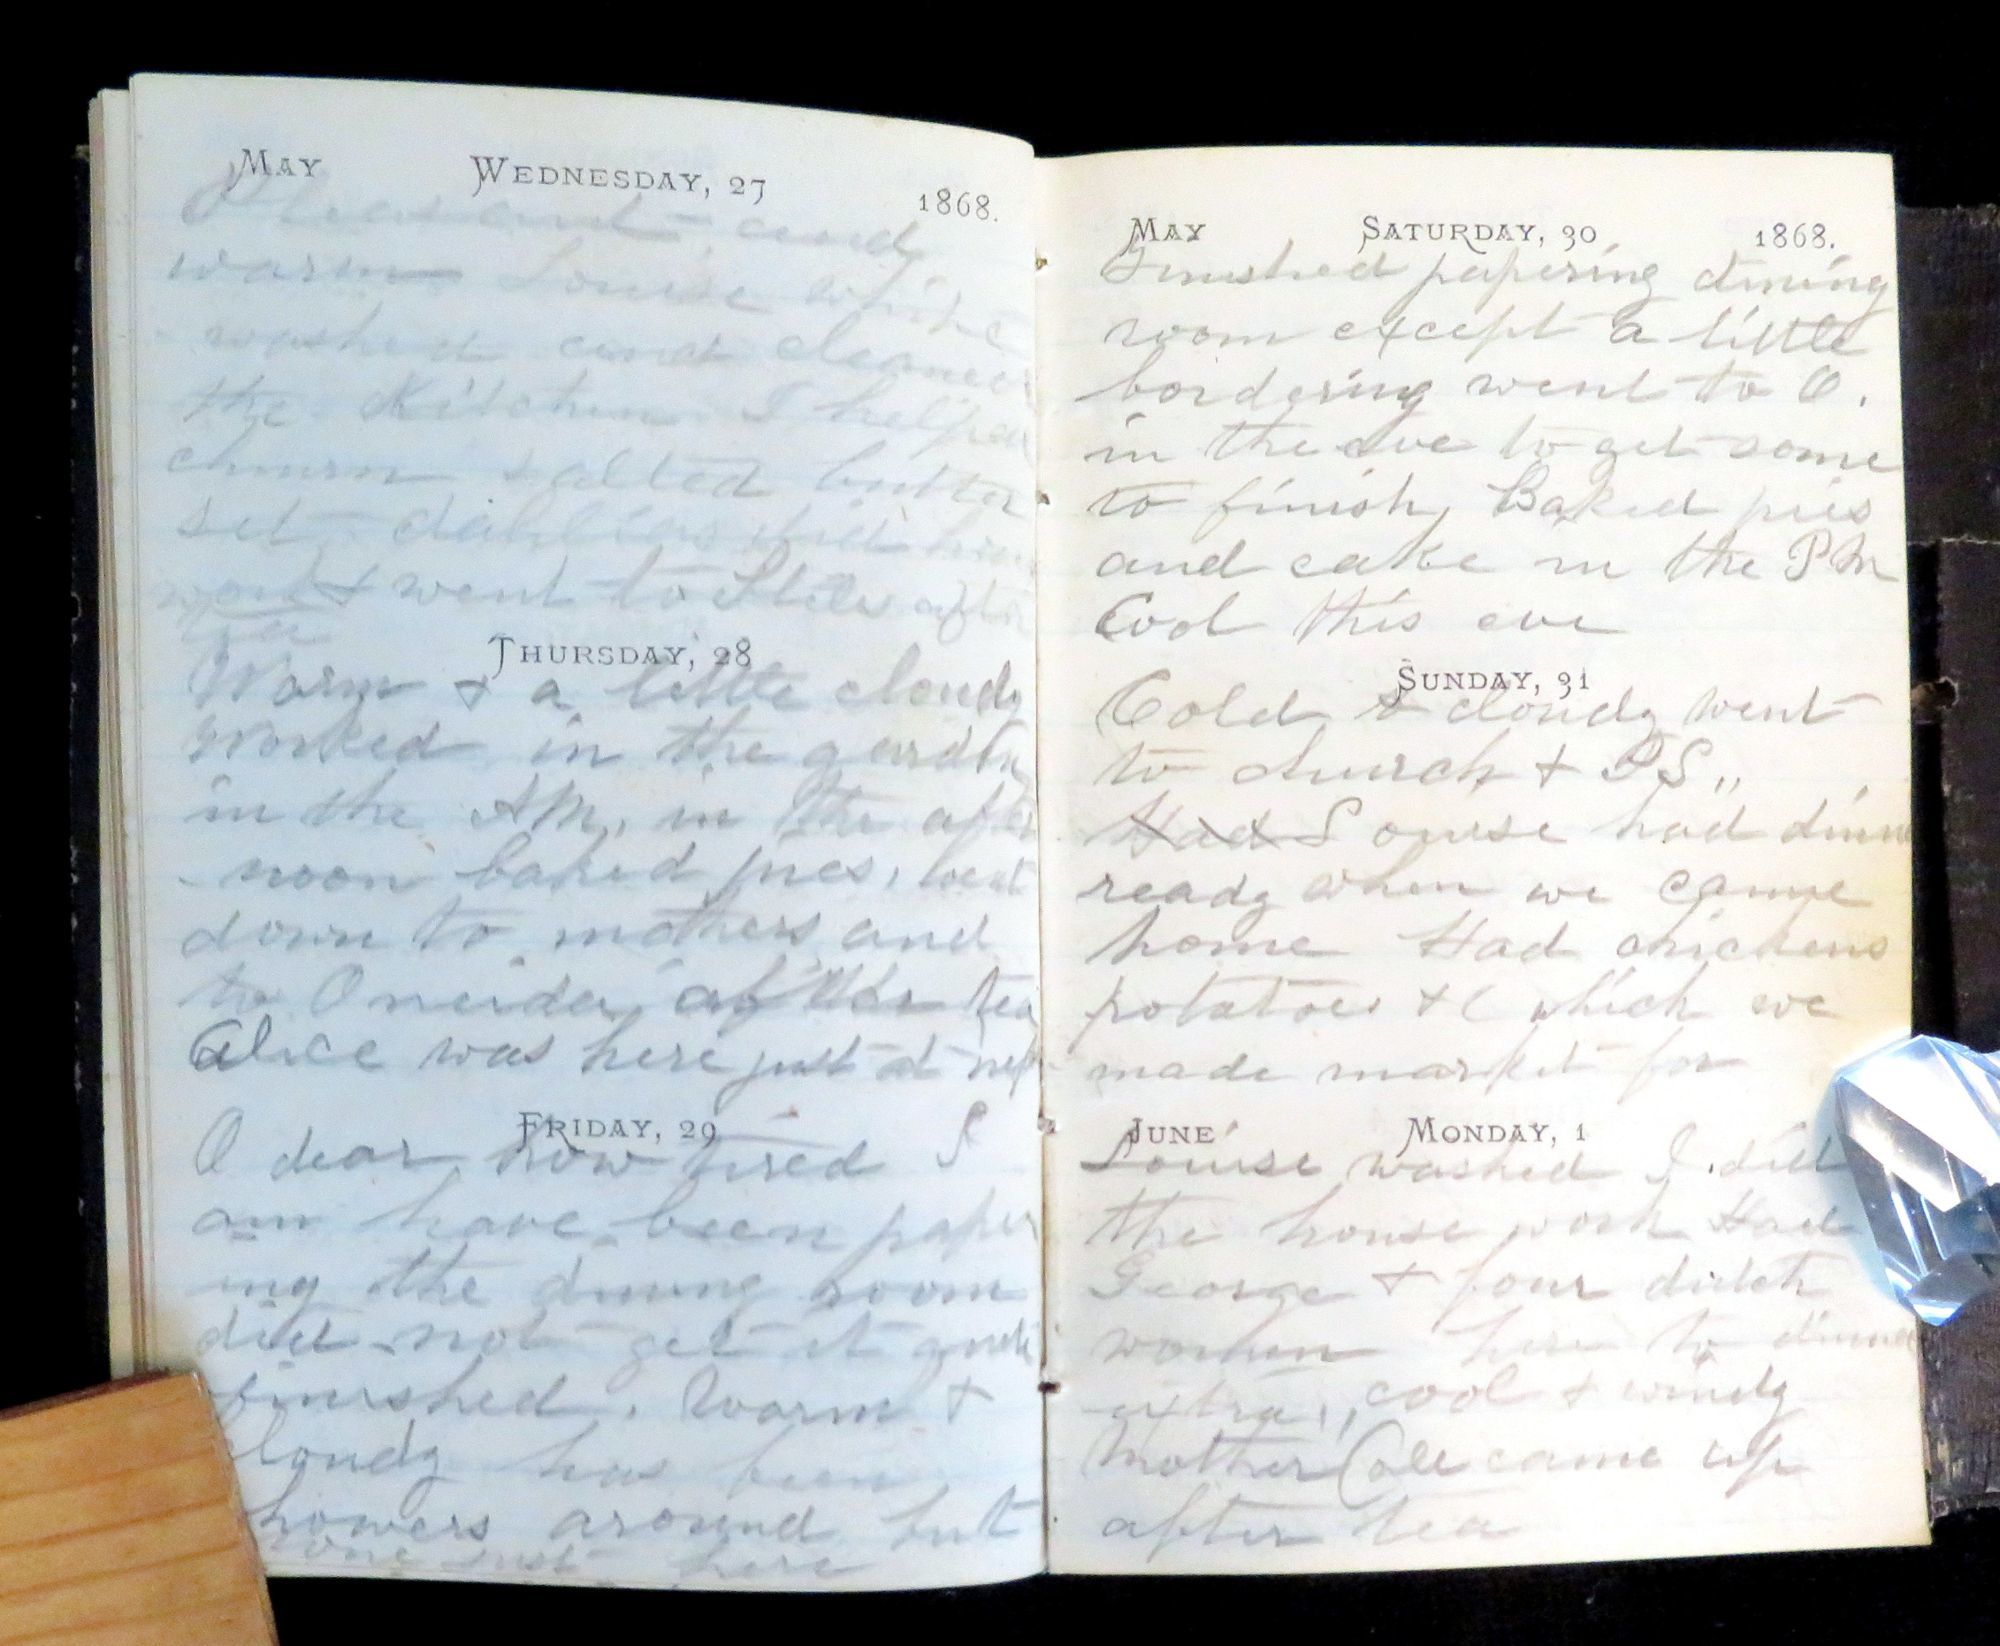 MAY WEDNESDAY, 27 1868.
Pleasant and
warm Louise white
washed and cleaned
the Kitchen I helped
churn salted butter
set dahlias did house
work & went to Stiles after
tea
THURSDAY, 28
Warm & a little cloudy
Worked in the garden
in the AM, in the after
-noon baked pies, went
down to mothers and
to Oneida after tea
Alice was here just at
FRIDAY, 29
O dear how tired I
am have been paper
ing the dining room
did not get it quite
finished. Warm &
cloudy has been
showers around but
none just here
MAY SATURDAY, 30 1868.
Finished papering dining
room except a little
bordering went to O.
in the eve to get some
to finish, Baked pies
and cake in the PM
Cool this eve
SUNDAY, 31
Cold & cloudy went
to church & S,,
Had Louise had dinner
ready when we came
home Had chickens
potatoes &c which we
made market for
JUNE MONDAY, 1
Louise washed I did
the house work Had
George & four ditch
women here to dinner
extra,, cool & windy
Mother Coe came up
after tea